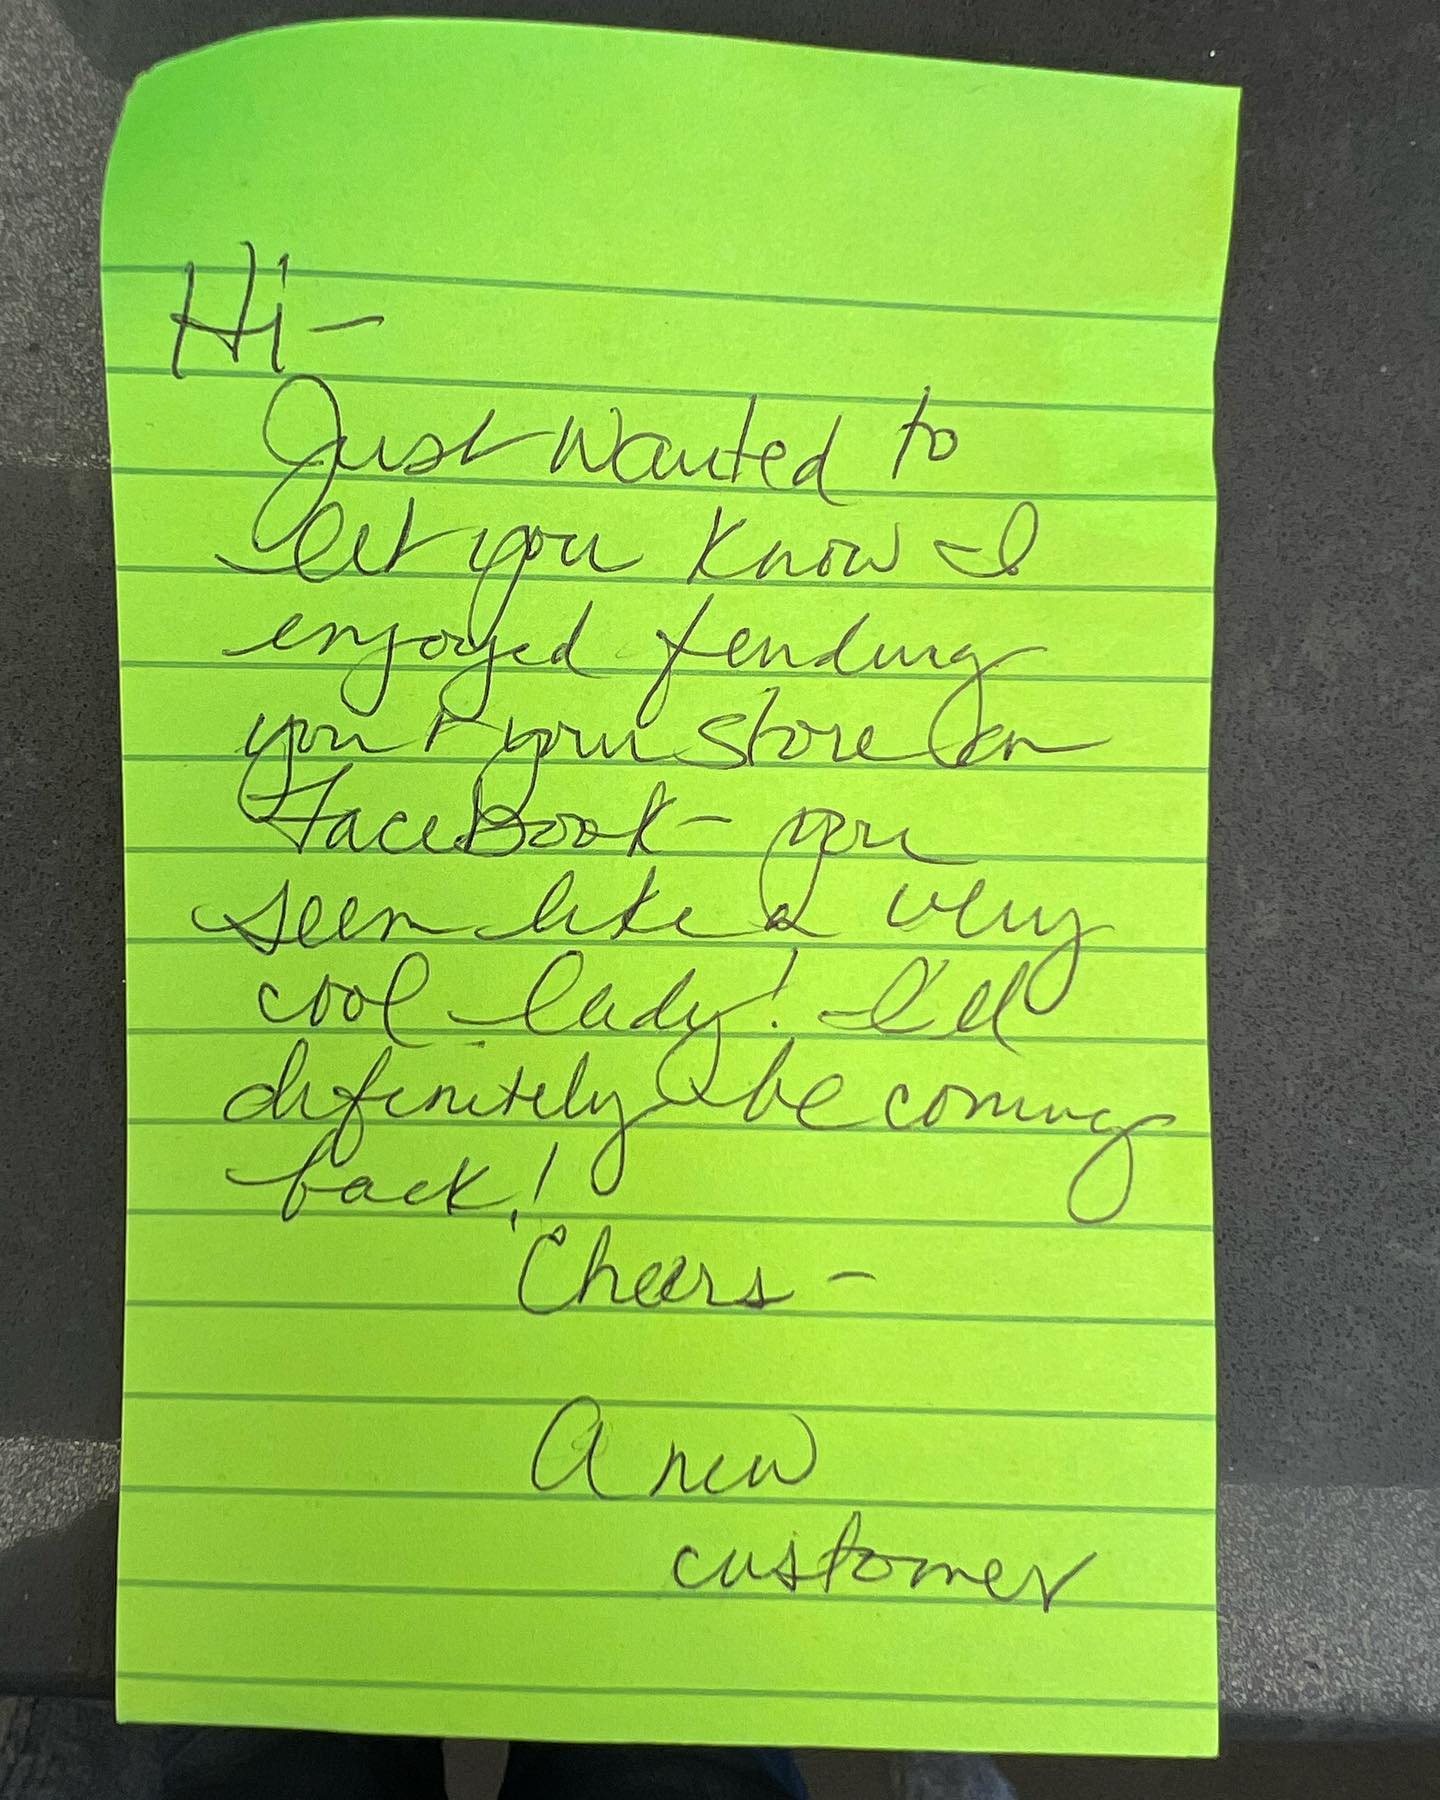 Hi-
Just wanted to
let you know I
enjoyed fending
you + your store on
FaceBook- you
seem like a very
cool lady! I'll
definitely be coming
back!
Cheers-
A new
customer